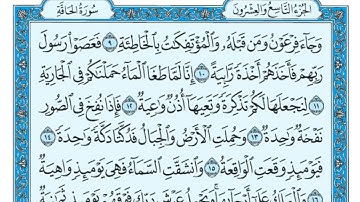 الجزء التاسع والعشرون
سورة الحاقة
وَجَآءَ فِرْعَوْنُ وَمَن قَبْلَهُۥ وَٱلْمُؤْتَفِكَٰتُ بِٱلْخَاطِئَةِ ٩ فَعَصَوْا۟ رَسُولَ
رَبِّهِمْ فَأَخَذَهُمْ أَخْذَةً رَّابِيَةً ١٠ إِنَّا لَمَّا طَغَا ٱلْمَآءُ حَمَلْنَٰكُمْ فِى ٱلْجَارِيَةِ
١١ لِنَجْعَلَهَا لَكُمْ تَذْكِرَةً وَتَعِيَهَآ أُذُنٌ وَٰعِيَةٌ ١٢ فَإِذَا نُفِخَ فِى ٱلصُّورِ
نَفْخَةٌ وَٰحِدَةٌ ١٣ وَحُمِلَتِ ٱلْأَرْضُ وَٱلْجِبَالُ فَدُكَّتَا دَكَّةً وَٰحِدَةً ١٤
فَيَوْمَئِذٍ وَقَعَتِ ٱلْوَاقِعَةُ ١٥ وَٱنشَقَّتِ ٱلسَّمَآءُ فَهِىَ يَوْمَئِذٍ وَاهِيَةٌ
١٦ وَٱلْمَلَكُ عَلَىٰٓ أَرْجَآئِهَا وَيَحْمِلُ عَرْشَ رَبِّكَ فَوْقَهُمْ يَوْمَئِذٍ ثَمَٰنِيَةٌ